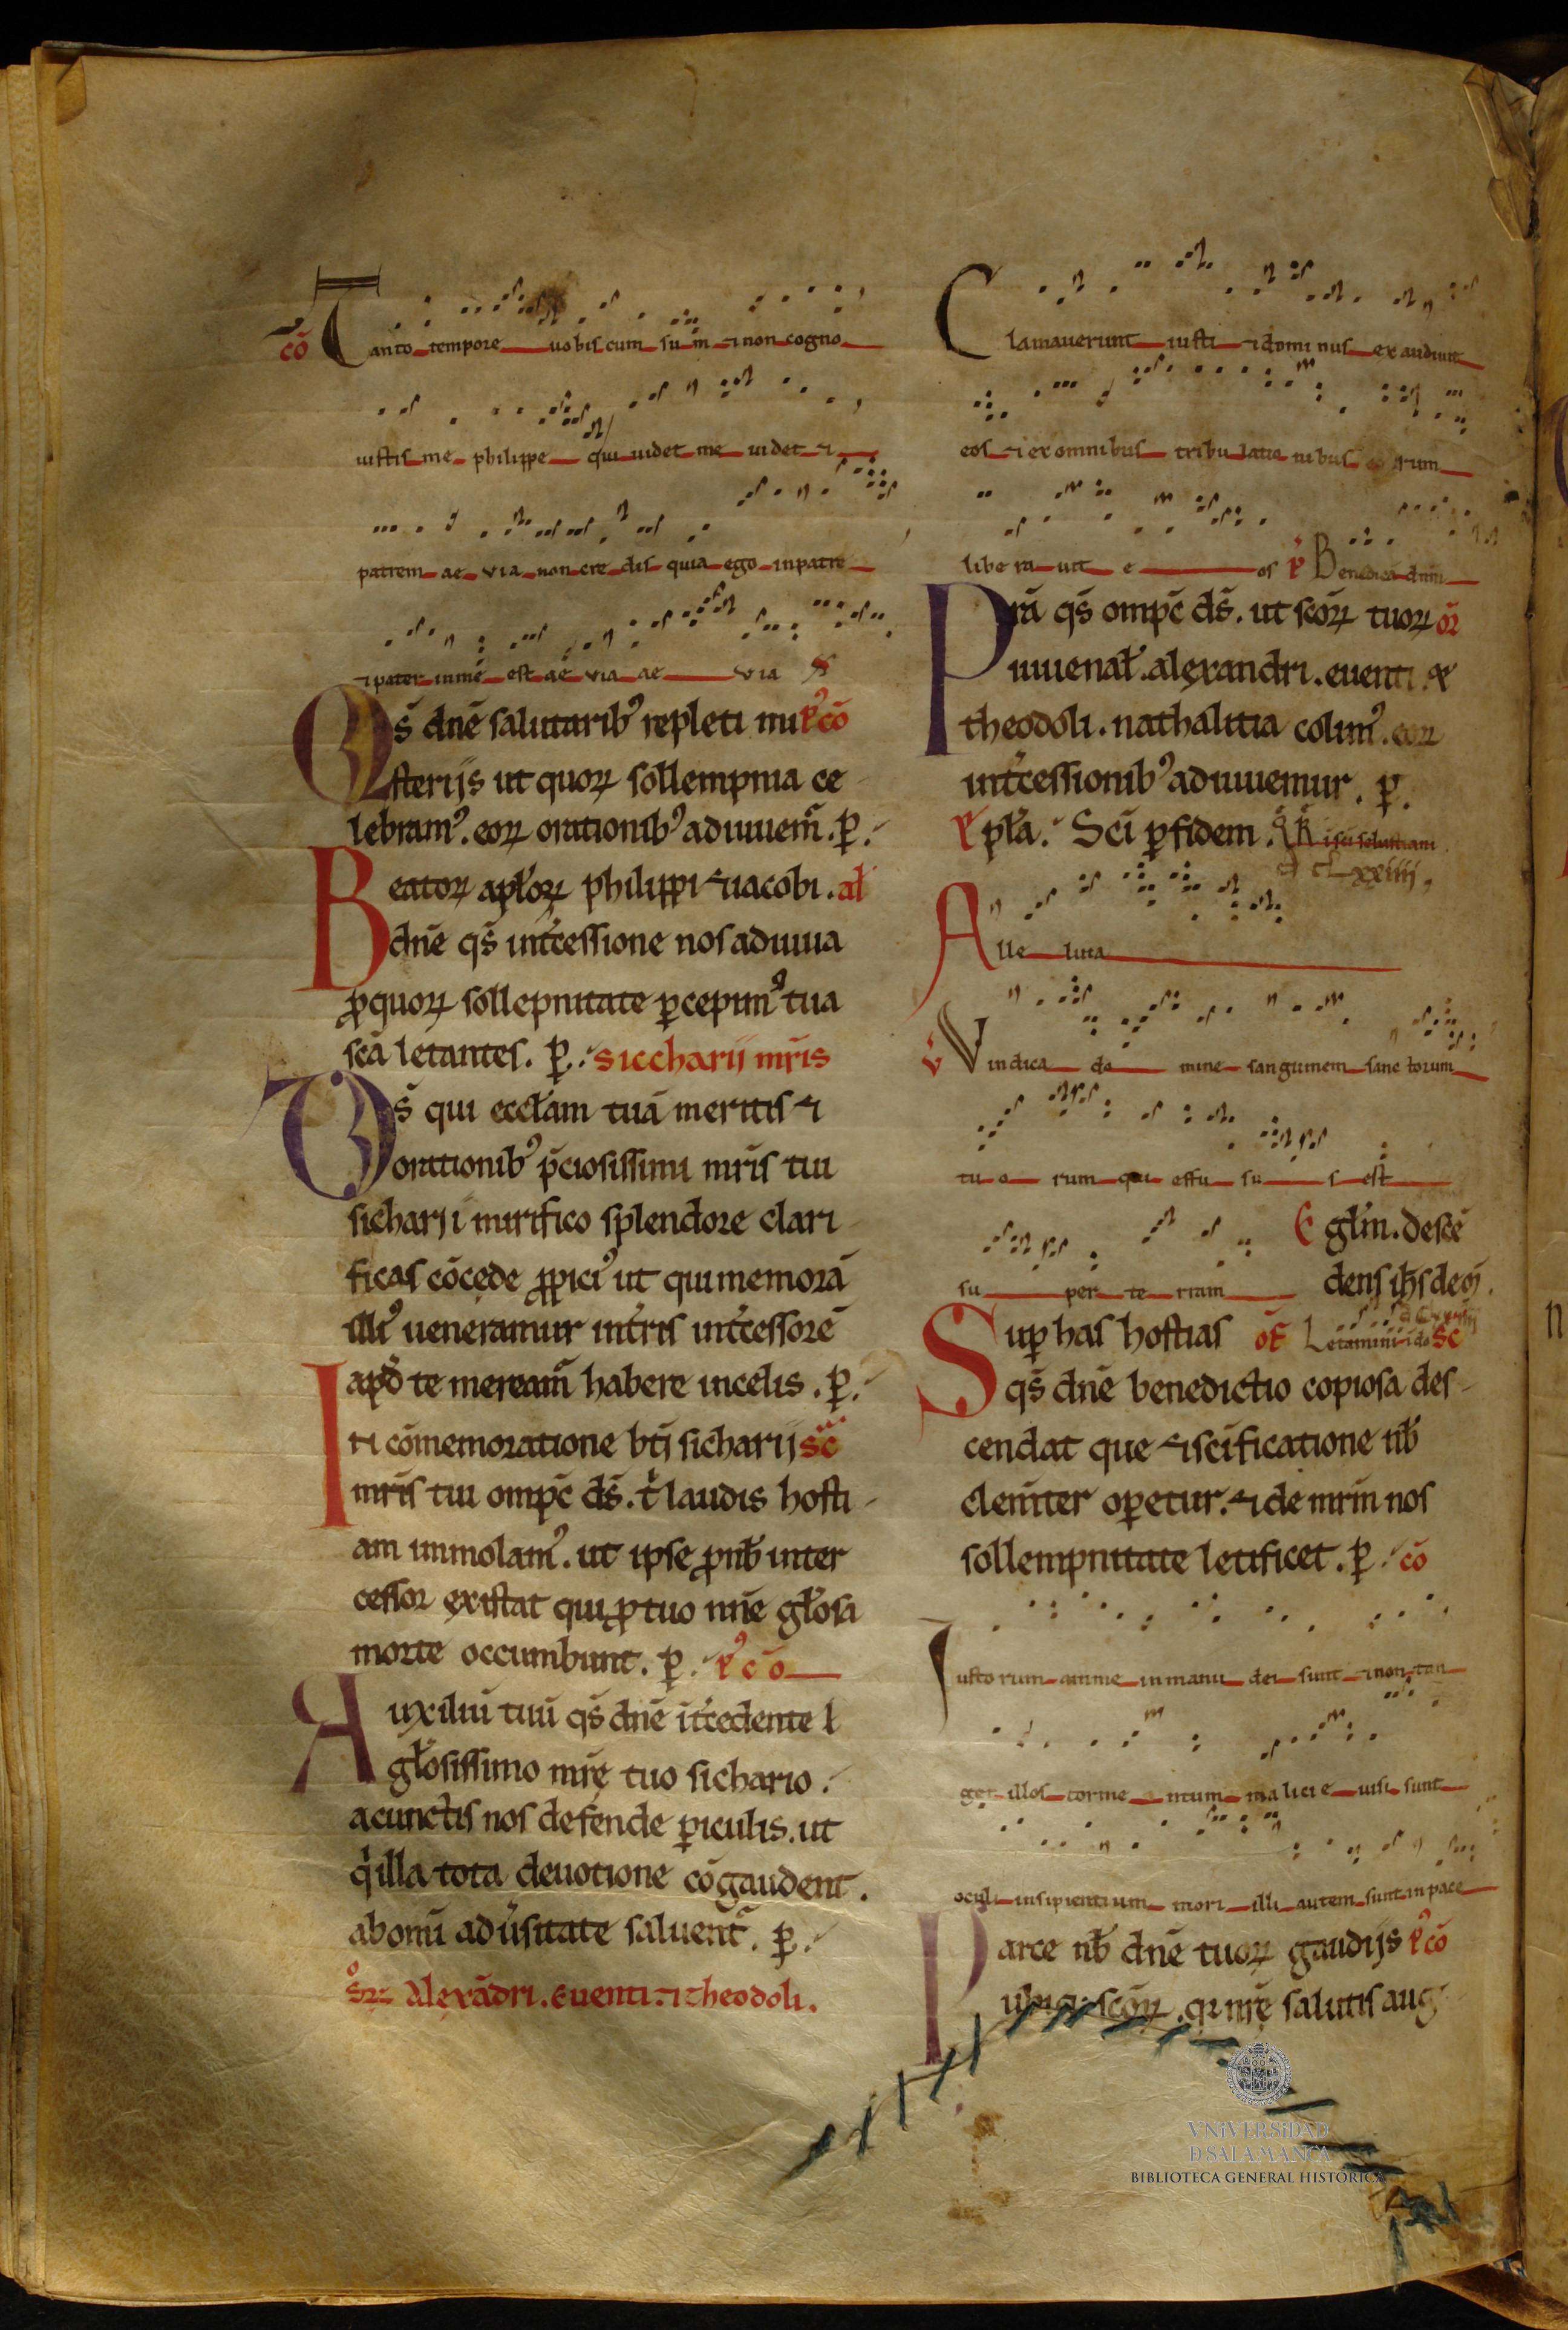 cō Tanto tempore uobiscum sum ⁊ non cogno
uistis me philippe qui uidet me uidet ⁊
patrem ae via non credis quia ego in patre
⁊ pater in me est ae via ae via
Qs̄ dnē salutarib᷒ repleti mi p᷒cō
sterijs ut quoꝝ sollempnia ce
lebram᷒. eoꝝ orationib᷒ adiuuem̄. ꝑ.
Beatoꝝ apl̄oꝝ philippi ⁊ iacobi. al̄
dnē qs̄ int̄cessione nos adiuua
ꝓ quoꝝ sollepnitate ꝑcepim᷒ tua
scā letantes. ꝑ. siccharij mr̄is
Ds̄ qui eccl̄am tuā meritis ⁊
orationib᷒ p̄ciosissimi mr̄is tui
sicharii mirifico splendore clari
ficas cōcede ꝓpici᷒ ut qui memorā
illi᷒ ueneramur int̄ris int̄cessorē
apd̄ te meream̄ habere in celis. ꝑ.
In cōmemoratione btī sicharij sc̄
mr̄is tui omp̄c ds̄. t̄ laudis hosti
am immolam᷒. ut ipse ꝓ nb̄ inter
cessor existat qui ꝓ tuo nnē gl̄osa
morte occumbunt. ꝑ. p᷒ cō
Auxiliū tuū qs̄ dnē it̄cedente
gl̄osissimo mr̄ę tuo sichario.
a cunctis nos defende ꝑiculis. ut
q̄ illa tota deuotione cōgaudent.
ab omī adūsitate saluent̄. ꝑ.
Alexādri. Euenti. ⁊ theodoli.
Clamauerunt iusti ⁊ dominus exaudiuit
eos ⁊ ex omnibus tribulatio nibus eorum
libe ra uit e os p̄ Benedicā dnm
Prā qs̄ omp̄c ds̄. ut scōꝝ tuoꝝ or̄
iuuenal̄. alexandri. euenti. ⁊
theodoli. nathalitia colim᷒. eoꝝ
int̄cessionib᷒ adiuuemur. ꝑ.
pl̄a. Scī ꝑ fidem.
Alle luia
v̄ Vindica do mine sanguinem sanc torum
tu o rum qui effu su s est
su per te rram
E gl̄m. descē
dens ih̄s de
Sup̄ has hostias of̄ Letamini i do sc̄
qs̄ dnē benedictio copiosa des
cendat que ⁊ scīficatione nb̄
clemt̄er oꝑetur. ⁊ de mr̄m nos
sollempnitate letificet. ꝑ. cō
Iusto rum anime in manu dei sunt ⁊ non tan
get illos torme ntum malicie uisi sunt
oculi insipientium mori illi autem sunt in pace
Parce nb̄ dnē tuoꝝ gaudijs p᷒cō
ubiq; scōꝝ. q; nr̄ę salutis aug
VNiVERSiDAD
D SALAMANCA
BIBLIOTECA GENERAL HISTÓRICA